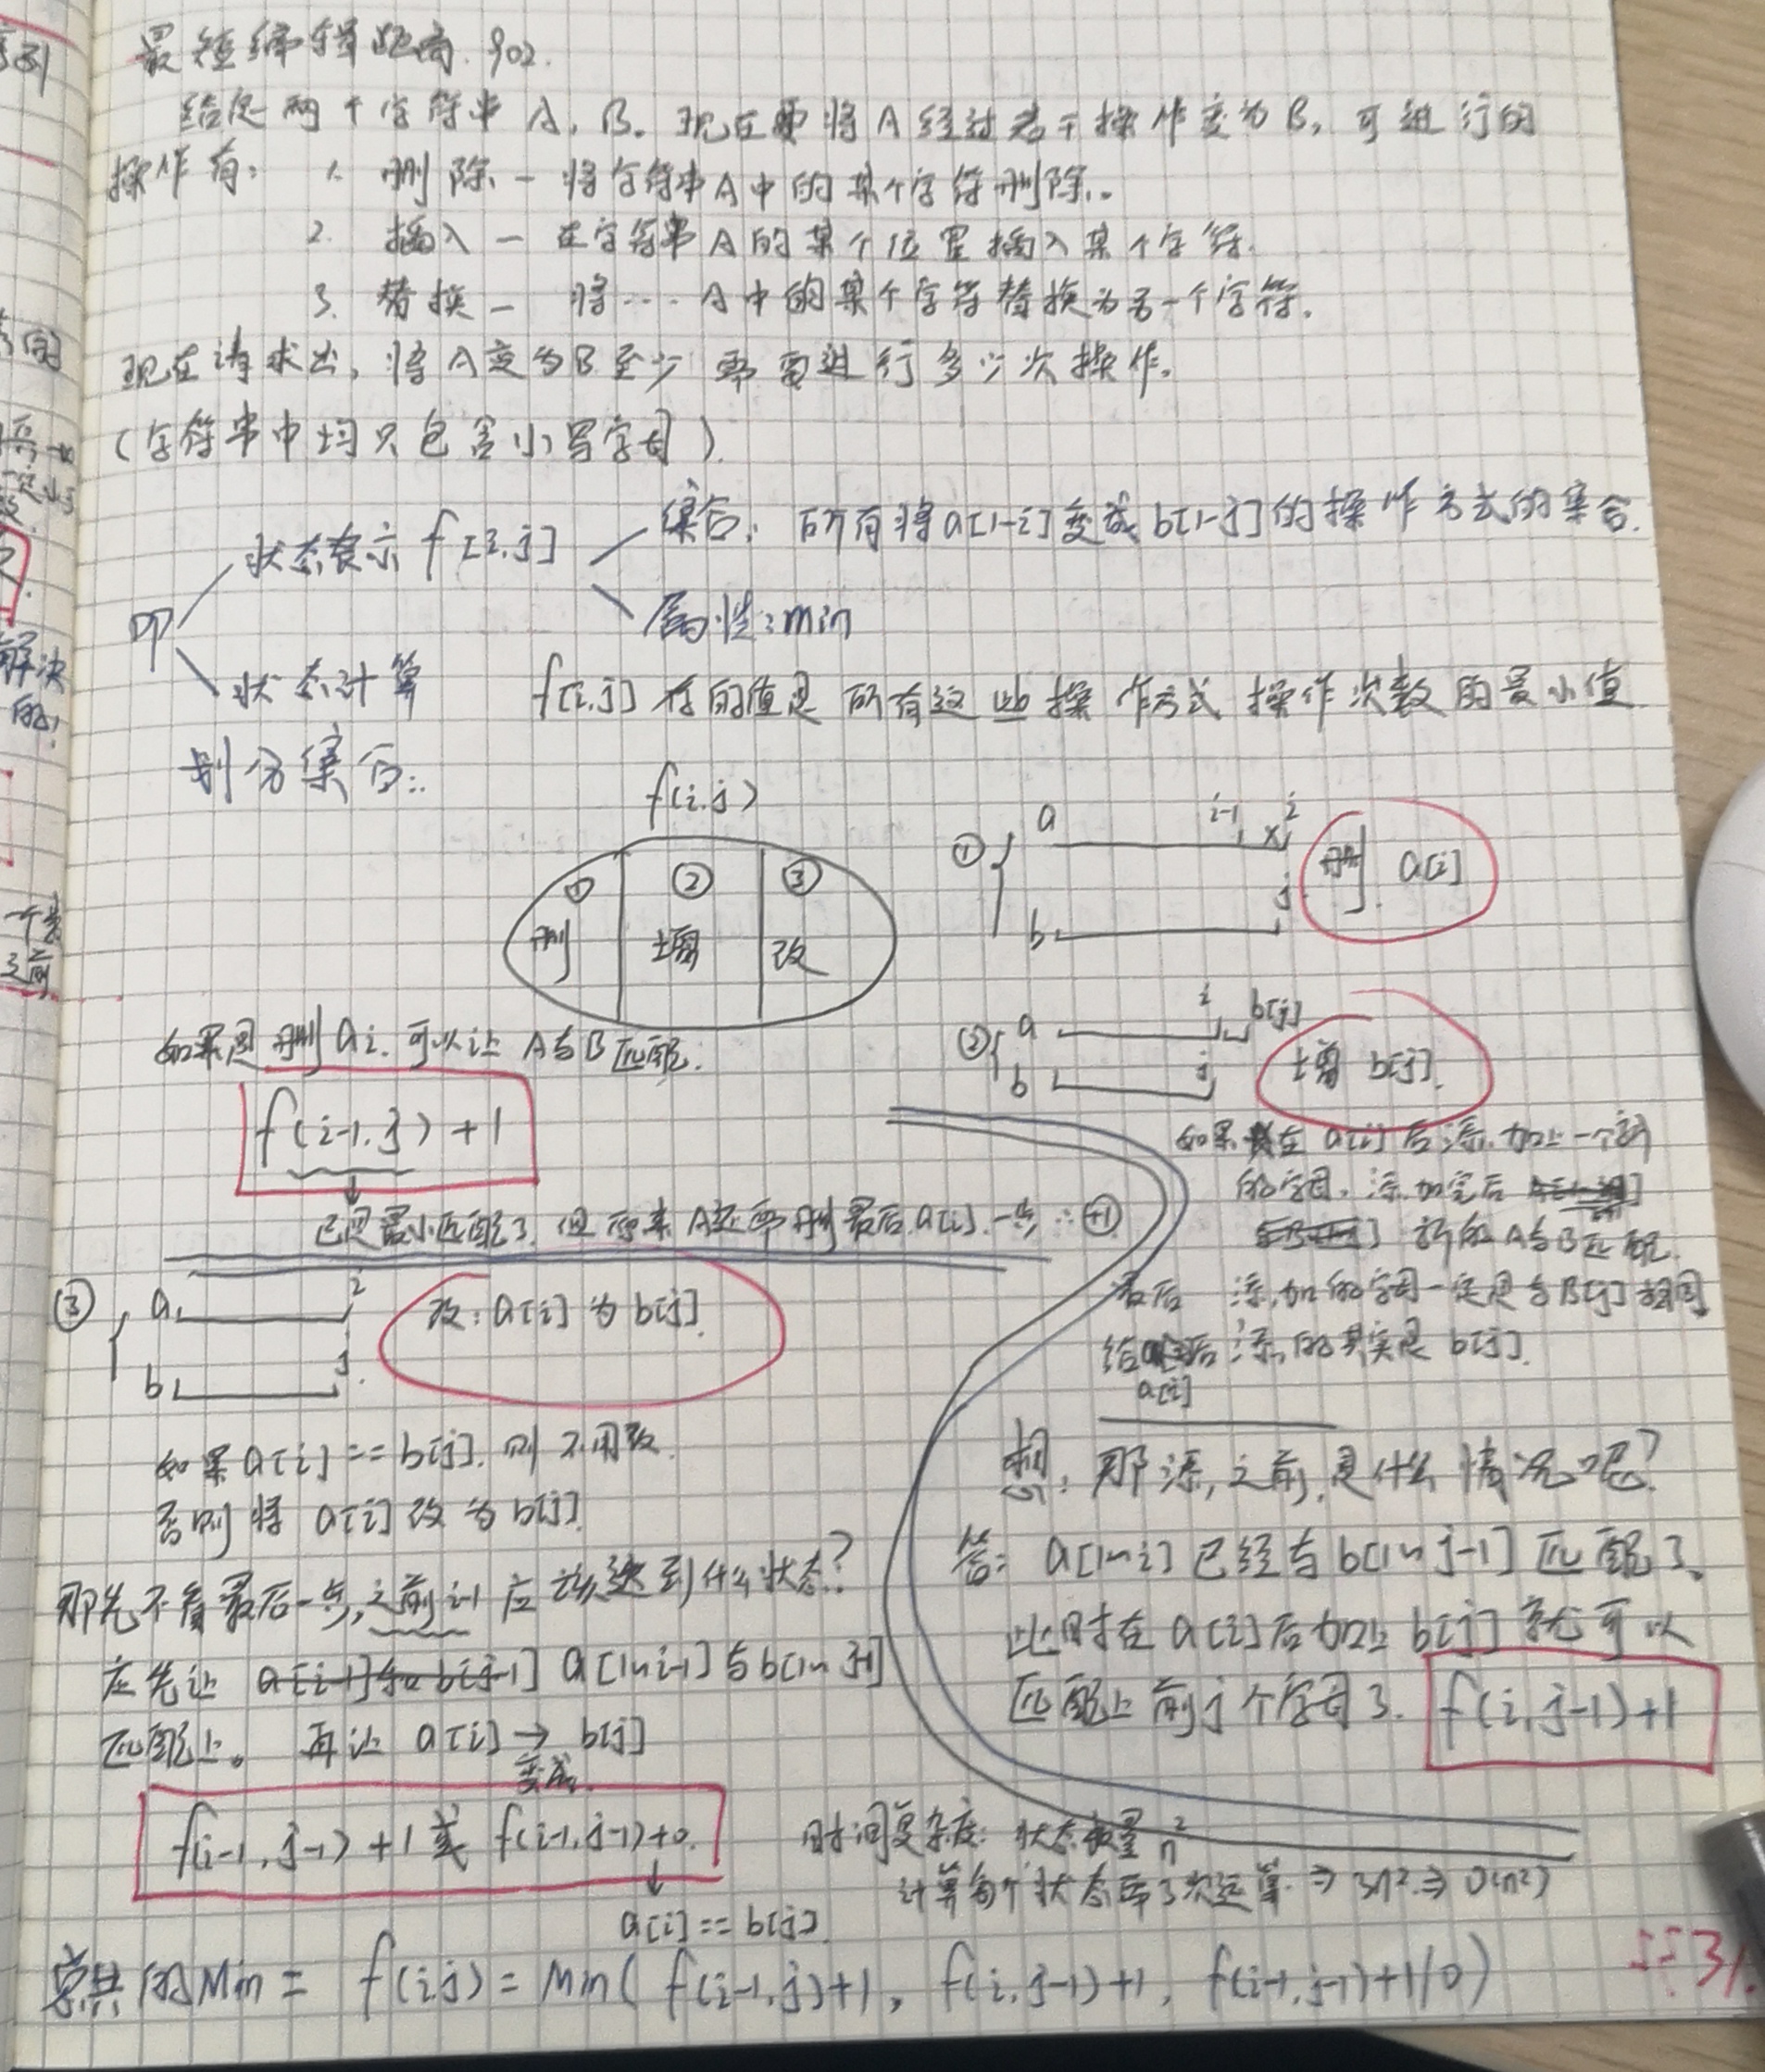 最短编辑距离. 902.
给定两个字符串 A, B。现在要将 A 经过若干操作变为 B, 可进行的
操作有: 1. 删除 - 将字符串A中的某个字符删除。
2. 插入 - 在字符串A的某个位置插入某个字符.
3. 替换 - 将···A中的某个字符替换为另一个字符.
现在请求出, 将A变为B至少需要进行多少次操作。
(字符串中均只包含小写字母).
集合: 所有将a[1-i]变成b[1-j]的操作方式的集合.
状态表示 f[i,j]
DP
属性: min
状态计算
f[i,j] 存的值是所有这些操作方式操作次数的最小值
划分集合:
f(i.j)
① ② ③
删 增 改
① a i-1 i
j
b
删 a[i]
如果是删 ai. 可以让 A与B匹配.
f(i-1.j)+1
已是最小匹配了. 但原来A还要删最后a[i]一步 ∴ +1
② a i b[j]
b j
增 b[j].
如果在 a[i] 后添加上一个新
的字母. 添加完后
新的A与B匹配.
最后添加的字母一定是与B[j]相同
给 后添的其实是 b[j].
a[i]
想: 那添之前是什么情况呢?
答: a[1~i] 已经与 b[1~j-1] 匹配了.
此时在 a[i]后加上 b[j] 就可以
匹配上前j个字母了. f(i,j-1)+1
③ a i
b j
改: a[i] 为 b[j].
如果a[i]==b[j]. 则不用改.
否则将 a[i] 改为 b[j].
那先不看最后一步, 之前i-1应该达到什么状态?
应先让 a[i-1]和b[j-1] a[1~i-1]与b[1~j-1]
匹配上。 再让 a[i] → b[j]
变成.
f(i-1,j-1)+1 或 f(i-1,j-1)+0.
a[i]==b[j].
时间复杂度: 状态数量 n²
计算每个状态要3次运算 ⇒ 3n² ⇒ O(n²)
总共的Min = f(i,j) = Min( f(i-1,j)+1, f(i,j-1)+1, f(i-1,j-1)+1/0)